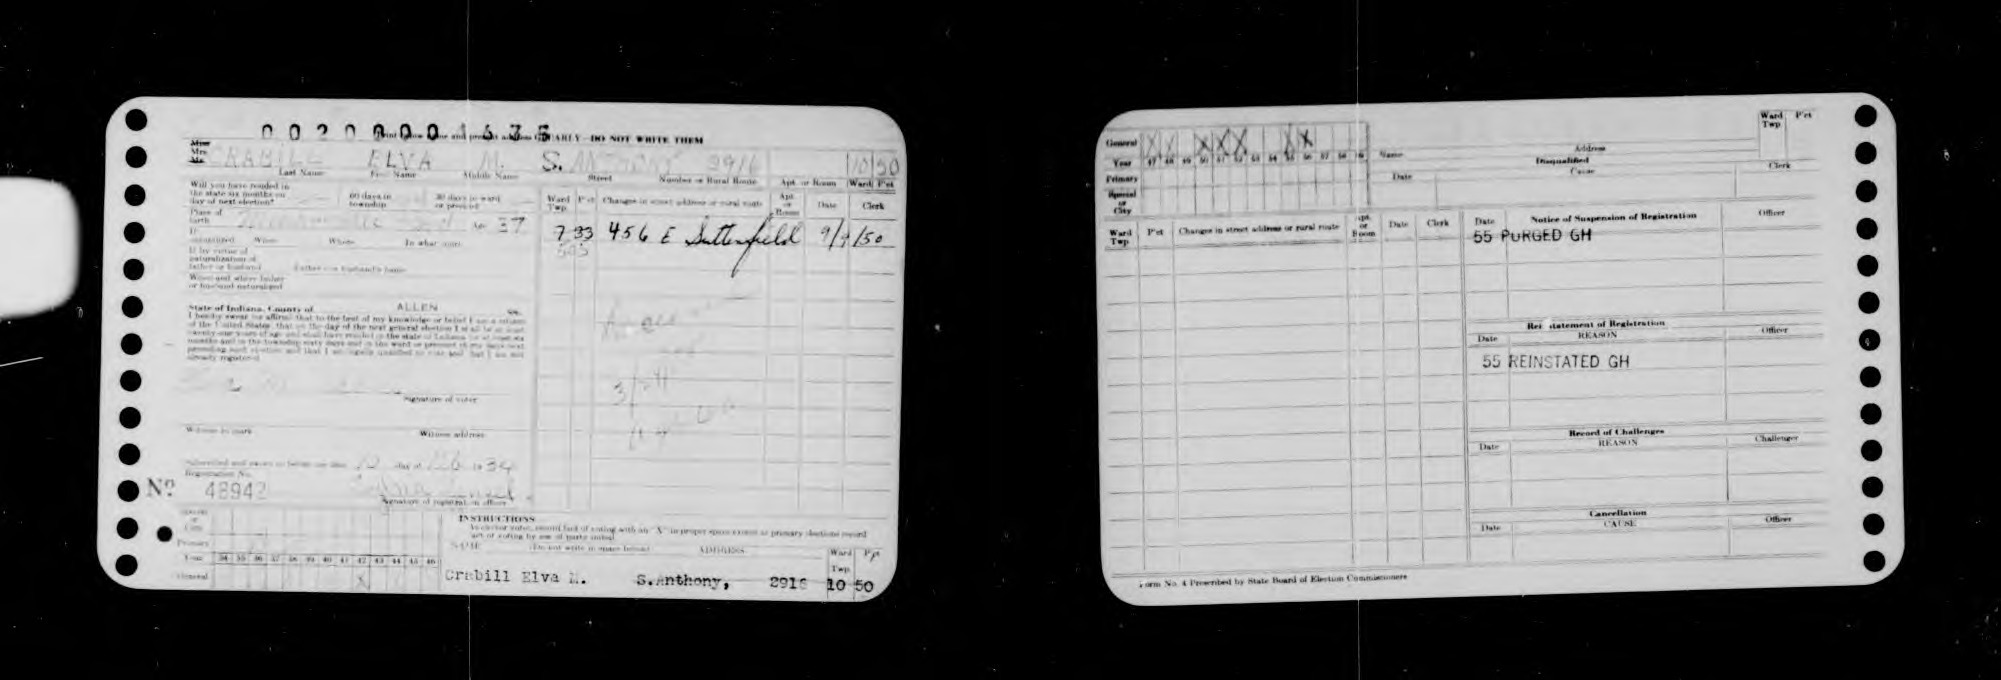 0020000 1675
CLEARLY—DO NOT WRITE THEM
Miss
Mrs.
Mr. CRABILL ELVA M. S. ANTHONY 2916 10 50
Last Name First Name Middle Name Street Number or Rural Route Apt. or Room Ward P'ct
Will you have resided in
the state six months on
day of next election?
60 days in
township
30 days in ward
or precinct
Place of
birth
Age 37
If
naturalized When Where In what court
If by virtue of
naturalization of
father or husband Father's or husband's name
When and where father
or husband naturalized
Ward
Twp. P'ct Changes in street address or rural route Apt.
or
Room Date Clerk
7 33 456 E Suttenfield 9/9/50
503
State of Indiana, County of ALLEN ss.
I hereby swear (or affirm) that to the best of my knowledge or belief I am a citizen
of the United States, that on the day of the next general election I shall be at least
twenty-one years of age and shall have resided in the state of Indiana for at least six
months and in the township sixty days and in the ward or precinct thirty days next
preceding such election and that I am legally qualified to vote and that I am not
already registered.
3/
Signature of voter
Witness to mark Witness address
Subscribed and sworn to before me this day of 1934
Registration No.
No. 48942
Signature of registration officer
INSTRUCTIONS
As elector votes, record fact of voting with an "X" in proper space except at primary elections record
act of voting by use of party initial.
NAME (Do not write in space below) ADDRESS Ward
Twp. P'ct
City
Primary
Year 34 35 36 37 38 39 40 41 42 43 44 45 46
General X
Crabill Elva M. S.Anthony, 2916 10 50
General X X X X X X X
Year 47 48 49 50 51 52 53 54 55 56 57 58 59
Primary
Special
or
City
Name Address
Ward
Twp. P'ct
Disqualified
Date Cause Clerk
Ward
Twp. P'ct Changes in street address or rural route Apt.
or
Room Date Clerk
Date Notice of Suspension of Registration Officer
55 PURGED GH
Reinstatement of Registration
Date REASON Officer
55 REINSTATED GH
Record of Challenges
Date REASON Challenger
Cancellation
Date CAUSE Officer
Form No. 4 Prescribed by State Board of Election Commissioners